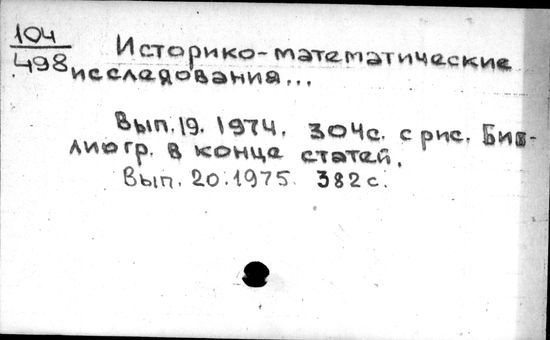 104
498
Историко-математические
исследования...
Вып. 19. 1974. 304с. с рис. Биб-
лиогр. в конце статей.
Вып. 20. 1975. 382 с.